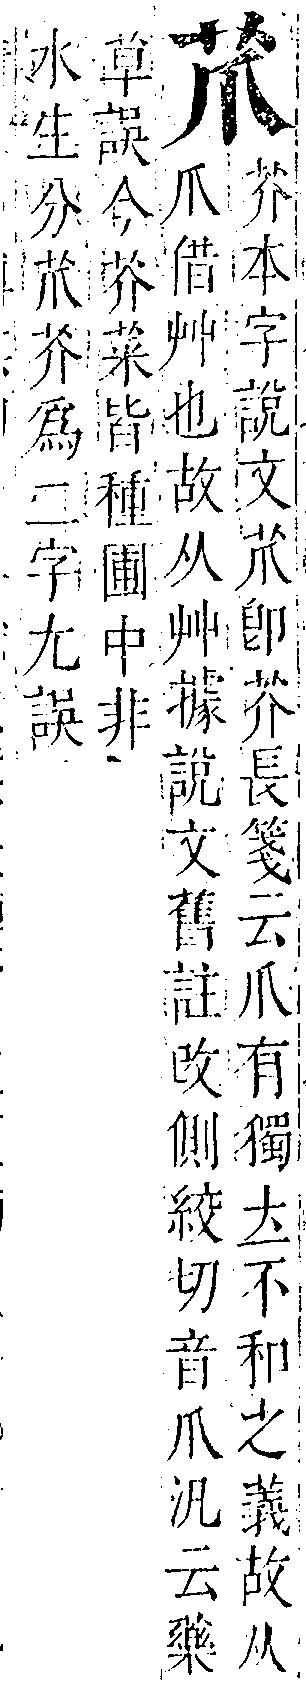 芥本字說文卽芥長箋云爪有獨立不和之義故从
爪借艸也故从艸據說文舊註改側絞切音爪汎云藥
草誤今芥菜皆種圃中非
水生分芥爲二字尤誤